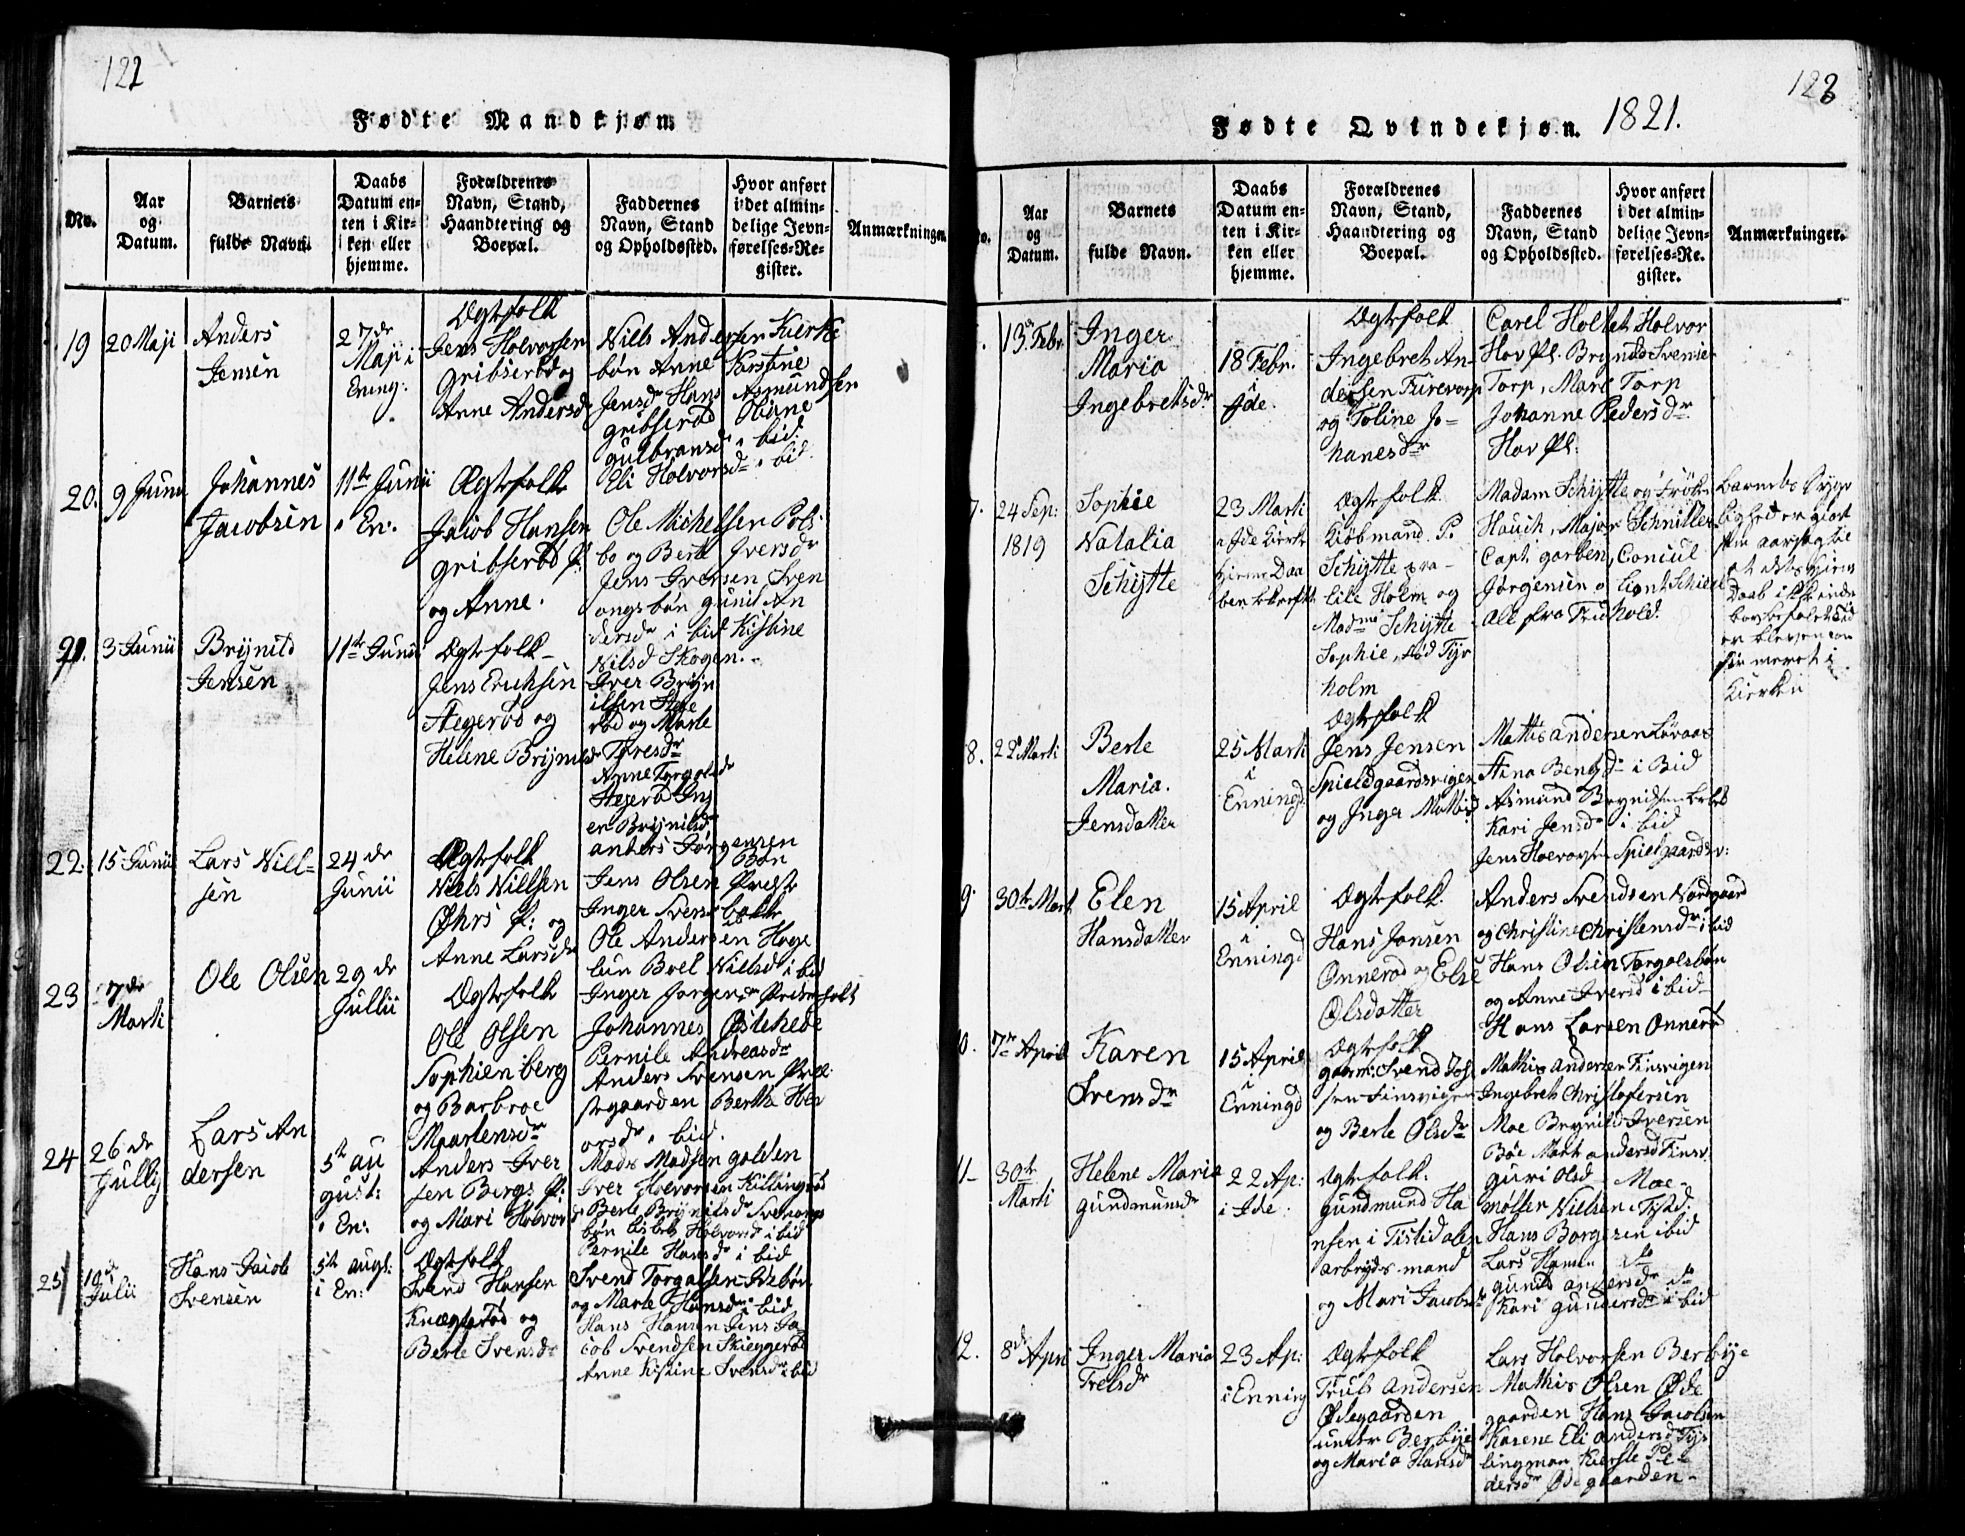 122
Fødte Mandkjøn
No.
Aar
og
Datum.
Barnets
fulde Navn.
Daabs
Datum en-
ten i Kir-
ken eller
hjemme.
Forældrenes
Navn, Stand,
Haandtering og
Boepæl.
Faddernes
Navn, Stand
og Opholdssted.
Hvor anført
i det almin-
delige Jevn-
førelses-Re-
gister.
Anmærkninger.
19
20 Maji
Anders
Jensen
27de
Maji i
Ening:
Ægtefolk
Jens Holvorsen
Gribserød og
Anne Andersdr
Nills Andersen Kierke
bøn Anne Karstine
Jensdr Hans Asmundsen
Gribserød
Gulbransdr i bid.
Eli Holvorsdr i bid
20.
9 Junii
Johannes
Jacobsen
11te Junii
i En:
Ægtefolk
Jacob Hansen
Gribserød P:
og Anne.
Ole Michelsen
bo og Berte Iversdr
Jens Iversen Sven
ongsbøn Gunil An
dersdr i bid Kistine
Nilsd Skogen.
21.
3 Junii
Brynild
Jensen
11te Junii
Ægtefolk
Jens Erichsen
Stegerød og
Helene Brynilsdr
Iver Bryn
ilsen Stege
rød og Marte
Toresdr
Anne Torgalsdr
Stegerød Ing
er Brynilsdr
22.
15 Junii
Lars Nill-
sen
24de
Junii
Ægtefolk
Niels Nillsen
Øhrs P: og
Anne Larsdr
Anders Jørgensen
Bøn
Jens Olsen Præste
Inger Svens bakke
Ole Andersen Hoge
lun Boel Nielsd i bid
Inger Jørgensdr
23
7de
Marti
Ole Olsen
29de
Jullii
Ægtefolk
Ole Olsen
Sophienberg
og Barbroe
Maartensdr
Johannes Østehede
Pernile Andreasdr
Anders Svensen Præ
stegaarden Berthe Hav
orsdr i bid.
24
26de
Jully
Lars An
dersen
5te au
gust:
i En:
Anders Iver
sen Bergs P:
og Mari Holvorsdr
Mads Madsen Galden
Iver Holvorsen Killingrød
Berte Brynilsdr Svenungs
bøn Lisbet Holvorsd i bid
Pernile Hansdr i bid
25
19de
Julii
Hans Jacob
Svensen
5te augt:
i En:
Ægtefolk
Svend Hansen
Knægterød og
Berte Svensdr
Svend Torgalsen Idebøn
og Marte Hansdr i bid
Hans Hansen Jens Ja
cob Svendsen Skieggerød
Anne Kistine Svensdr i bid
123
Fødte Qvindekjøn. 1821.
No.
Aar
og
Datum.
Barnets
fulde Navn.
Daabs
Datum en-
ten i Kir-
ken eller
hjemme.
Forældrenes
Navn, Stand,
Haandtering og
Boepæl.
Faddernes
Navn, Stand
og Opholdssted.
Hvor anført
i det almin-
delige Jevn-
førelses-Re-
gister.
Anmærkninger.
13de Febr
Inger
Maria
Ingebretsdr
18 Febr.
i
Ide.
Ægtefolk
Ingebret An-
dersen
og Toline Jo-
hanesdr
Carel Holter Holvor
Hov Pl. Brynild Svense
Torp, Marte Torp
Johanne Pedersdr
Hov Pl.
7.
24 Sep:
1819
Sophie
Natalia
Schytte
23 Marti
i Ide Kierke
hjeme Daa
ben bekreftet
Ægtefolk
Kiøbmand P.
Schytte fra
Lille Holm og
Madme Schytte
Sophie, fød Tyr
holm
Madam Schytte og Frøken
Hauch, Major Schniller
Capt. Garben, Concul
Jørgensen o Lieut Schiell
Alle fra Fridhold.
Barnets Syge
lighed er giort
som aarsag til
at dets hiem
Daab
er bleven con
firmeret i
Kierken
8.
22 Marti
Berte
Maria.
Jensdatter
25 Marti
i
Enningd
Ægtefolk
Jens Jensen
Spieldgaardsvigen
og Inger Mathisd
Mattis Andersen Løvaas
Stina Bengdr i Bid
Asmund Brynildsen
Kari Jensdr i bid
Jens Hoevorsen Spielgaardsv:
9
30te Mart
Elen
Hansdatter
15 April
i
Enningd
Ægtefolk.
Hans Jansen
Onnerød og Else
Olsdatter
Anders Svendsen Nordgaard
og Christine Christensdr i bid
Hans Olsen Torgalsbøn
og Anne Iversd i bid
Hans Larsen Onnerø
10.
7de April
Karen
Svensdr
15 April
i
Enningd
Ægtefolk
gaarm: Svend Joh
sen Finsvigen
og Berte Olsdr
Mathis Andersen Finsvigen
Ingebret Christofersen
Moe Brynild Iversen
Bøe Marte Andersd Finsv:
11
30te
Marti
Helene Maria
Gundmunsdr
22 Ap:
i Ide:
Ægtefolk.
Gundmund Ha
nsen i Tistedalen
arbeyds mand
og Mari Jacobsdr
Guri Olsd Moe
Møller Nielsen Tisted:
Hans Borgersen i bid
Lars Hansen do
Gunild Andersdr do
Kari Gundersdr i bid
12.
8de Apri
Inger Maria
Trelsdr
23 Ap:
i Enning
Ægtefolk
Truls Andersen
Ødegaarden
under Berbye
og Maria Hansdr
Lars Holvorsen Berbye
Mathis Olsen Øde
gaarden Hans Jacobsen
Karene Eli Andersd
Kierste Pe
dersdr Ødegaarden